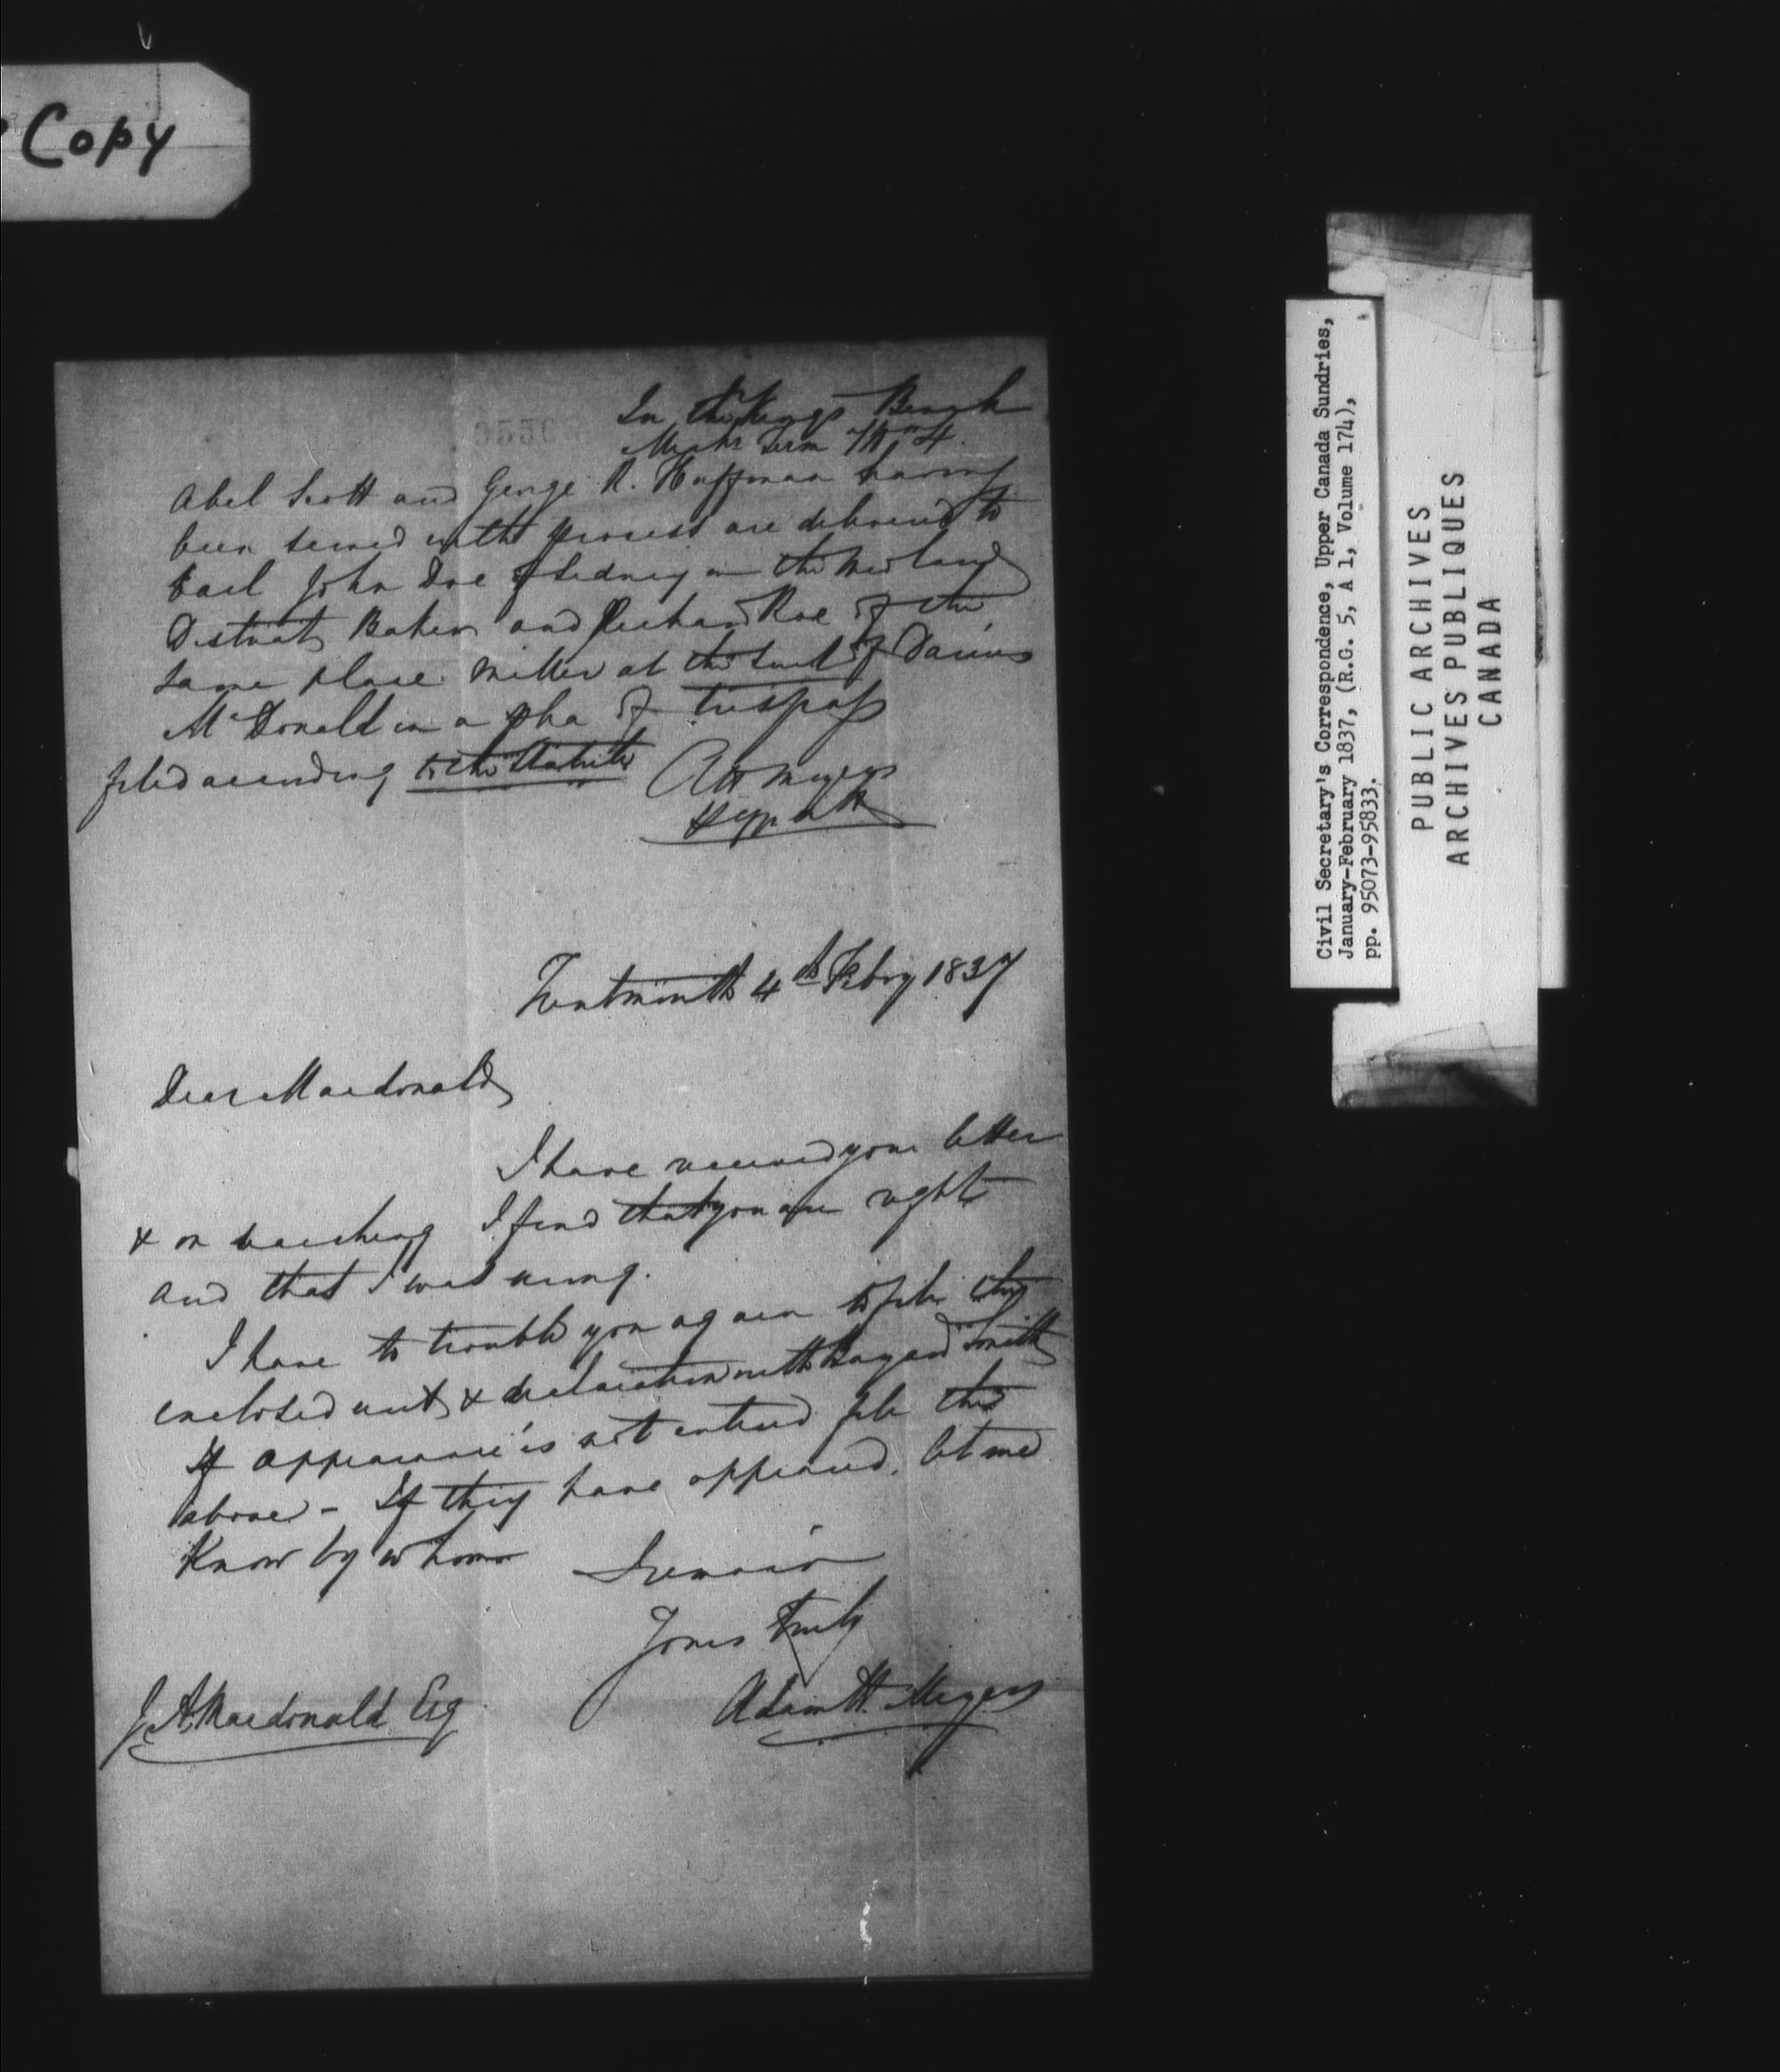 Copy
In the Kings Bench
Term Wm 4.
Abel Scott and George R. Huffman having
been served with process are delivered to
bail John Doe of Sidney in the Midland
District Baker and Richard Roe of the
same place Miller at the suit of Darius
McDonald in a plea of trespass
filed according to the Statute AH Meyers
Trentmouth 4th Febry 1837
Dear Macdonald
I have received your letter
& on searching I find that you are right
and that I was wrong.
I have to trouble you again to file the
enclosed writ & declaration with Smith
If appearance is not entered file the
above - If they have appeared, let me
know by whom I remain
Yours Truly
J. A. Macdonald Esq Adam H. Meyers
Civil Secretary's Correspondence, Upper Canada Sundries,
January-February 1837, (R.G. 5, A 1, Volume 174),
pp. 95073-95833.
PUBLIC ARCHIVES
ARCHIVES PUBLIQUES
CANADA